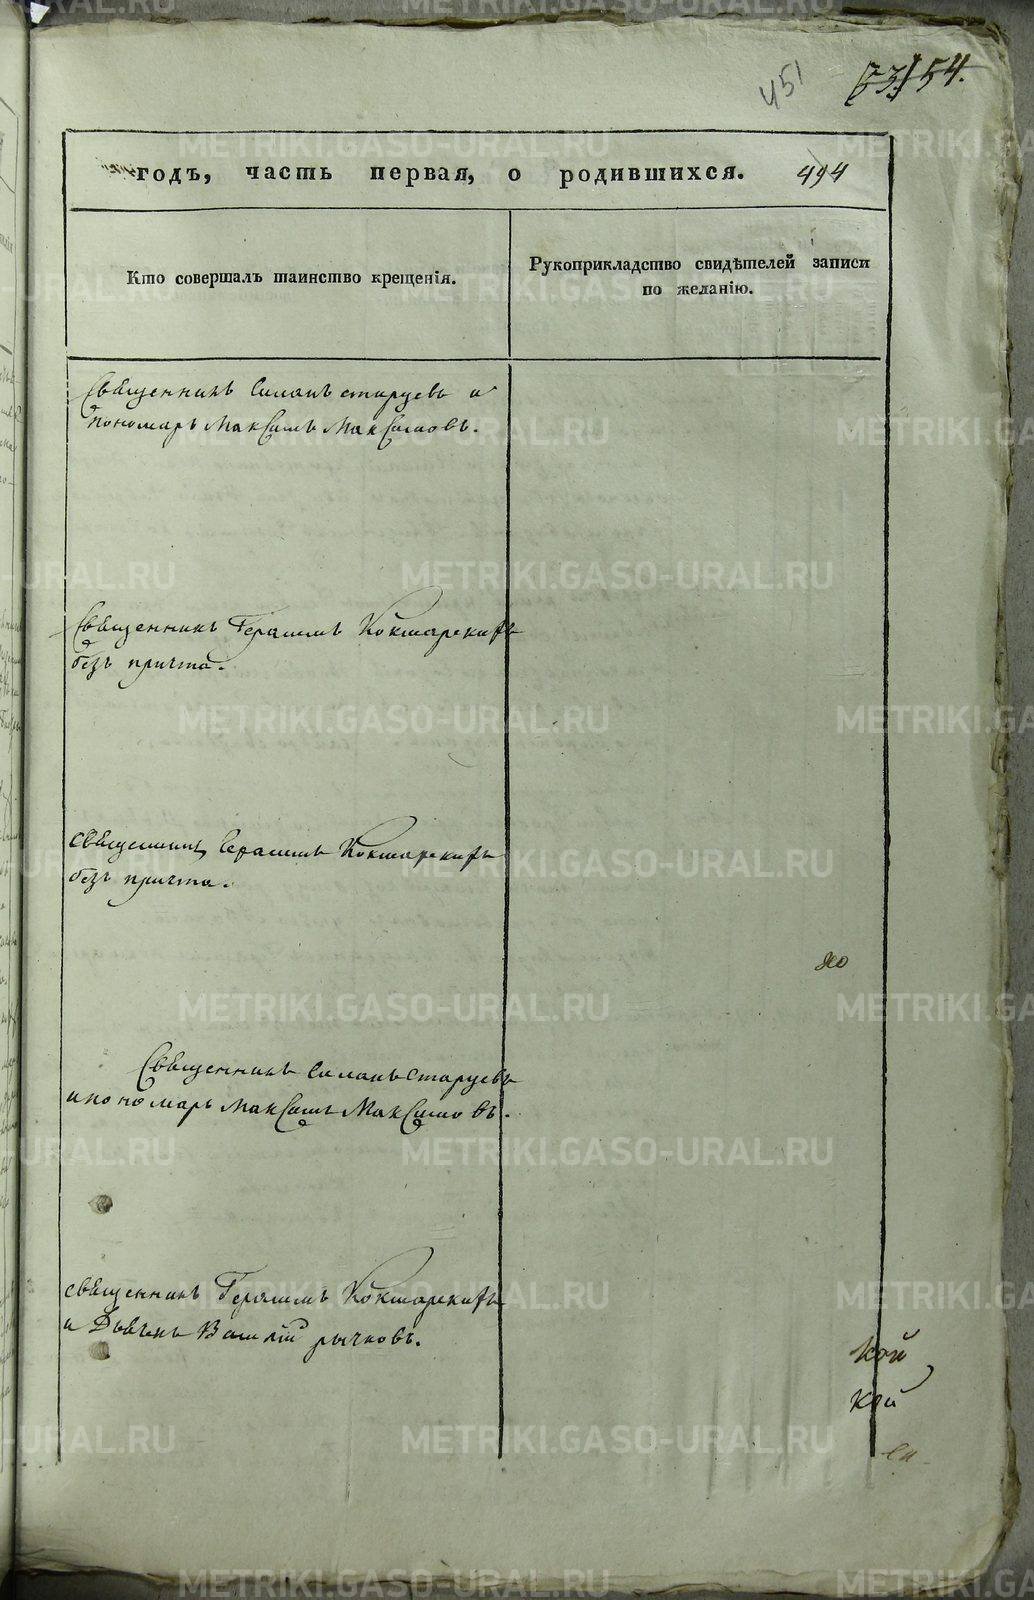 451
53) 54.
годъ, часть первая, о родившихся. 494
Кто совершалъ таинство крещенія.
Рукоприкладство свидѣтелей записи
по желанію.
Священникъ Симонъ старцевъ и
пономарь Максимъ Максимовъ.
Священникъ Герасимъ Кокшарскихъ
безъ причта.
священникъ Герасимъ Кокшарскихъ
безъ причта.
Священникъ Симонъ старцевъ
и пономарь Максимъ Максимовъ.
священникъ Герасимъ Кокшарскихъ
и Дьячекъ Василій рычковъ.
кой
кой
METRIKI.GASO-URAL.RU